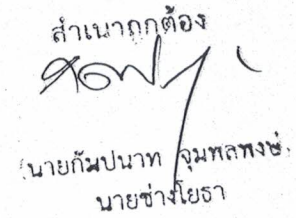 สำเนาถูกต้อง
(นายกัมปนาท จุมพลพงษ์)
นายช่างโยธา